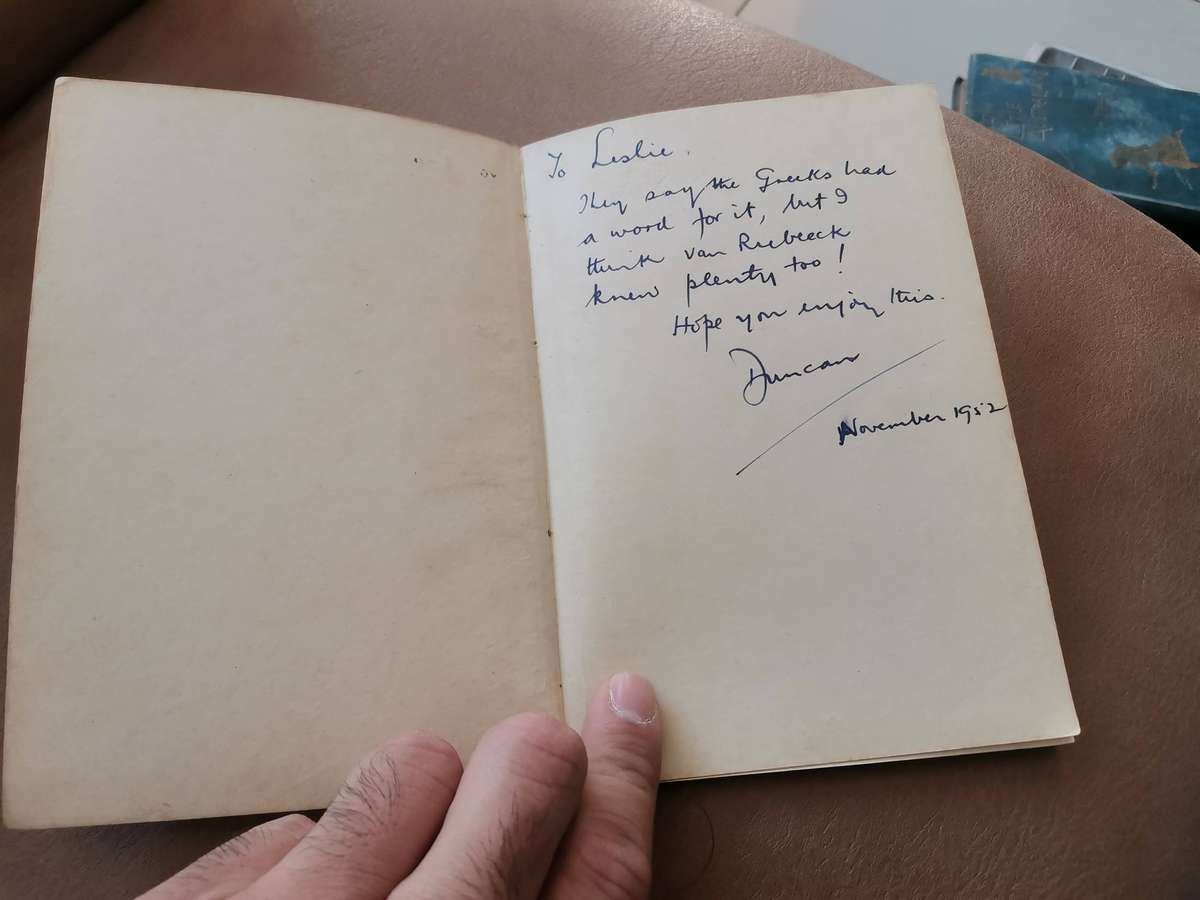 To Leslie.
They say the Greeks had
a word for it, but I
think van Riebeeck
knew plenty too!
Hope you enjoy this.
Duncan
November 1952